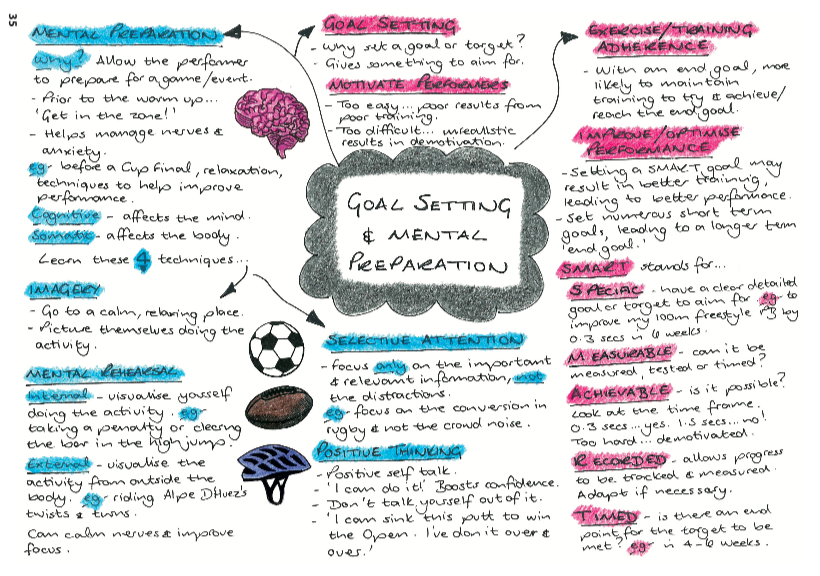 35
MENTAL PREPARATION
Why? Allow the performer
to prepare for a game/event.
- Prior to the warm up...
'Get in the zone!'
- Helps manage nerves &
anxiety.
eg - before a Cup Final, relaxation,
techniques to help improve
performance.
Cognitive - affects the mind.
Somatic - affects the body.
Learn these 4 techniques...
IMAGERY
- Go to a calm, relaxing place.
- Picture themselves doing the
activity.
MENTAL REHEARSAL
Internal - visualise yourself
doing the activity. eg -
taking a penalty or clearing
the bar in the high jump.
External - visualise the
activity from outside the
body. eg - riding Alpe DHuez's
twists & turns.
Can calm nerves & improve
focus.
GOAL SETTING
- Why set a goal or target?
- Gives something to aim for.
MOTIVATE PERFORMERS
- Too easy... poor results from
poor training.
- Too difficult... unrealistic
results in demotivation.
GOAL SETTING
& MENTAL
PREPARATION
SELECTIVE ATTENTION
- focus only on the important
& relevant information, not
the distractions.
eg - focus on the conversion in
rugby & not the crowd noise.
POSITIVE THINKING
- Positive self talk.
- 'I can do it!' Boosts confidence.
- Don't talk yourself out of it.
- 'I can sink this putt to win
the Open. I've don it over &
over.'
EXERCISE/TRAINING
ADHERENCE
- With an end goal, more
likely to maintain
training to try & achieve/
reach the end goal.
IMPROVE/OPTIMISE
PERFORMANCE
- Setting a SMART goal may
result in better training,
leading to better performance.
- Set numerous short term
goals, leading to a longer term
'end goal.'
SMART stands for...
SPECIFIC - have a clear detailed
goal or target to aim for eg - to
improve my 100m freestyle PB by
0.3 secs in 6 weeks.
MEASURABLE - can it be
measured, tested or timed?
ACHIEVABLE - is it possible?
Look at the time frame.
0.3 secs... yes. 1.5 secs... no!
Too hard... demotivated.
RECORDED - allows progress
to be tracked & measured.
Adapt if necessary.
TIMED - is there an end
point for the target to be
met? eg - in 4-6 weeks.